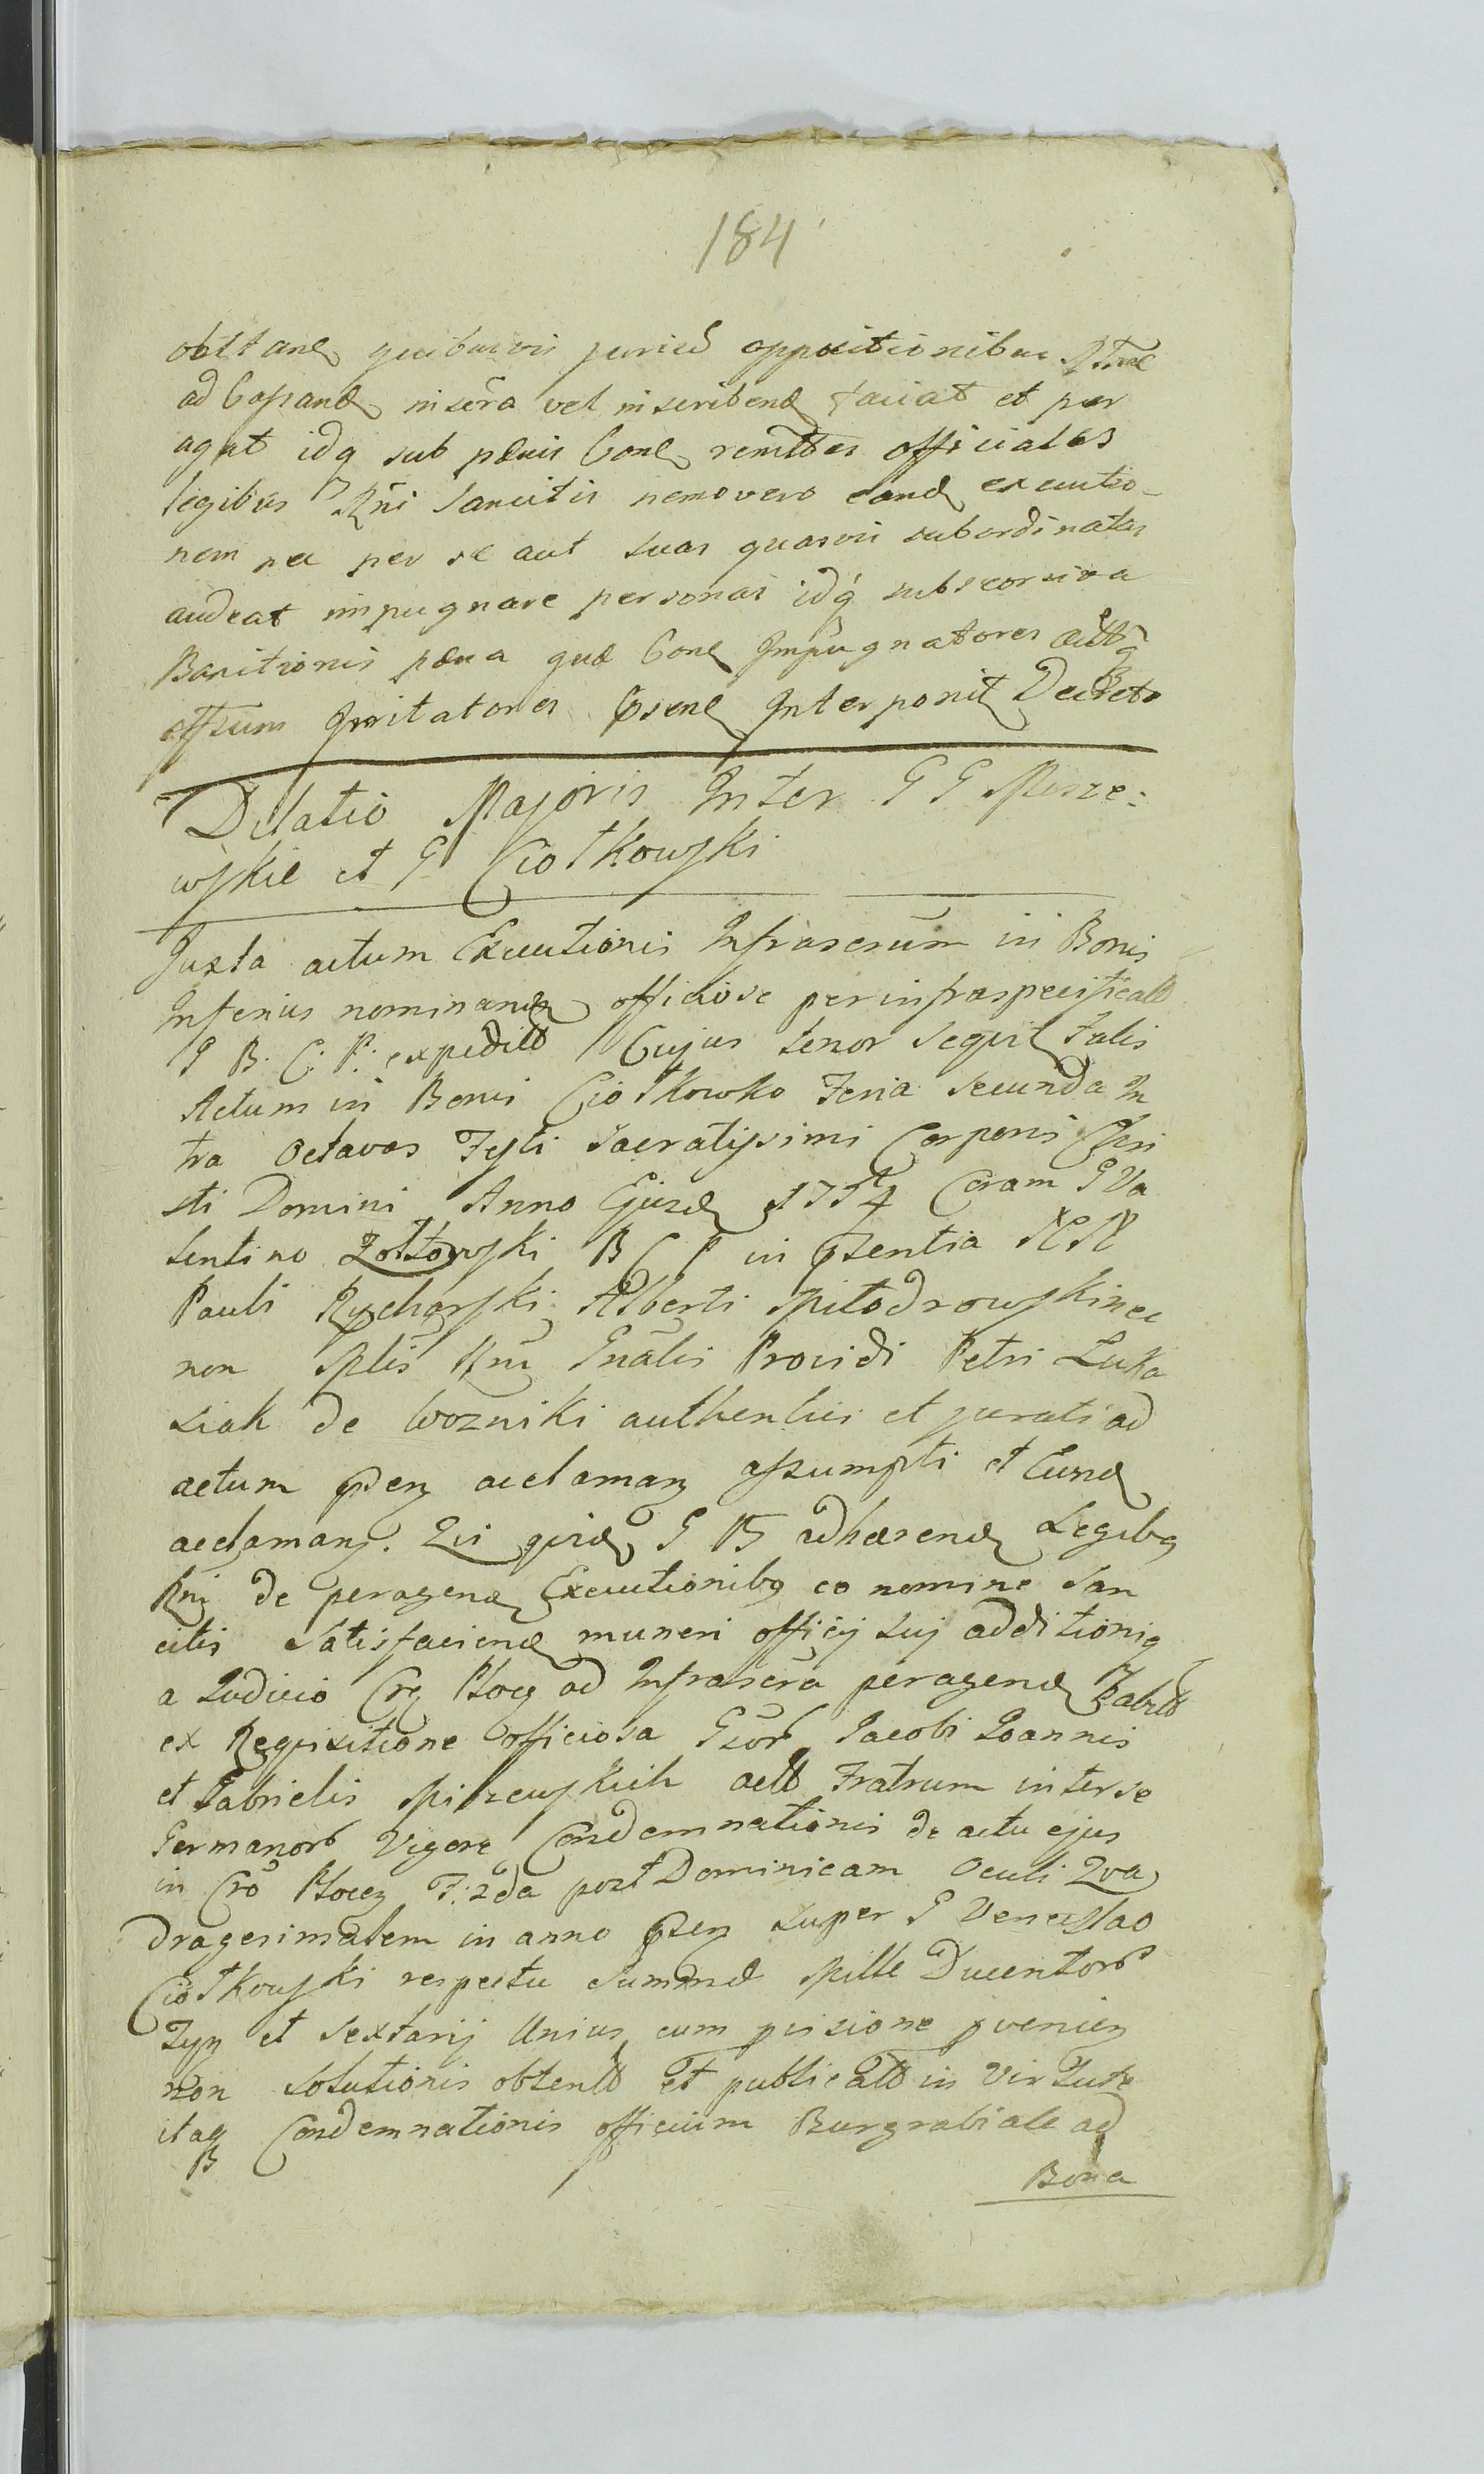 184
obstane quibusvis juried oppositionibus
ad Capiane inscra vel inscribend faciat et per
agat idq sub pænis Cone remttes officiales
legibus Rñi Sancitis nemo vero eand executio-
nem nec per se aut suas quasvis subordinatas
audeat impugnare personas idq sub seorsiva
Banitionis pæna quæ Cone Impugnatores
offium Irritatores psene Interponit Decreto
Dilatio Majoris Inter G G Misze:
wskie et G Ciołkowski
Juxta actum Executionis Infrascrum in Bonis
Inferius nominand officiose per infraspecificatt
G B. C. P. expeditt Cujus tenor sequit talis
Actum in Bonis Ciołkowko Feria secunda In
tra octavas Festi Sacratissimi Corporis Chri
sti Domini Anno Ejusd 1774 Coram G Va
lentino Zołtowski B C P in psentia NN
Pauli Rycharski Alberti Miłodrowski nec
non Mlis Rni Gnalis Providi Petri Luka
siak de Wozniki authentici et jurati ad
actum psen acclaman assumpti et Eund
acclaman. Qui quid G B adhærend Legibq
Rni de peragend Executionibq eo nomine San
citis satisfaciend muneri officij sui additioniq
a Judicio Crz Płocz ad Infrascra peragend habitt
ex Requisitione officiosa Gsor Jacobi Joannis
et Gabrielis Miszewskich actt Fratrum inter se
Germanor Vigore Condemnationis de actu ejus
in Cro Płocen F: 2da post Dominicam Oculi Qva
dragesimalem in anno psen super G Venceslao
Ciołkowski respectu summæ Mille Ducentor
Zyp et sextarij Unius cum pisione pvenien
non solutionis obtentt et publicatt in Virtute
itaq Condemnationis officium Burgrabiale ad
B
Bona